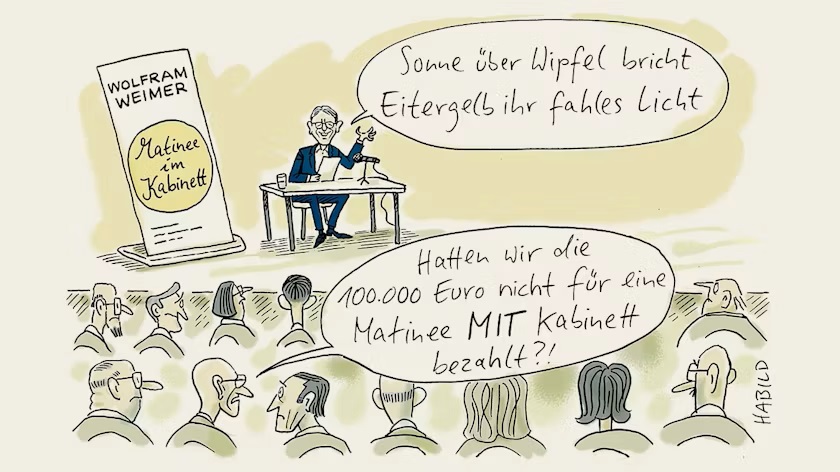 WOLFRAM
WEIMER
Matinee
im
Kabinett
Sonne über Wipfel bricht
Eitergelb ihr fahles Licht
Hatten wir die
100.000 Euro nicht für eine
Matinee MIT Kabinett
bezahlt?!
HABILD